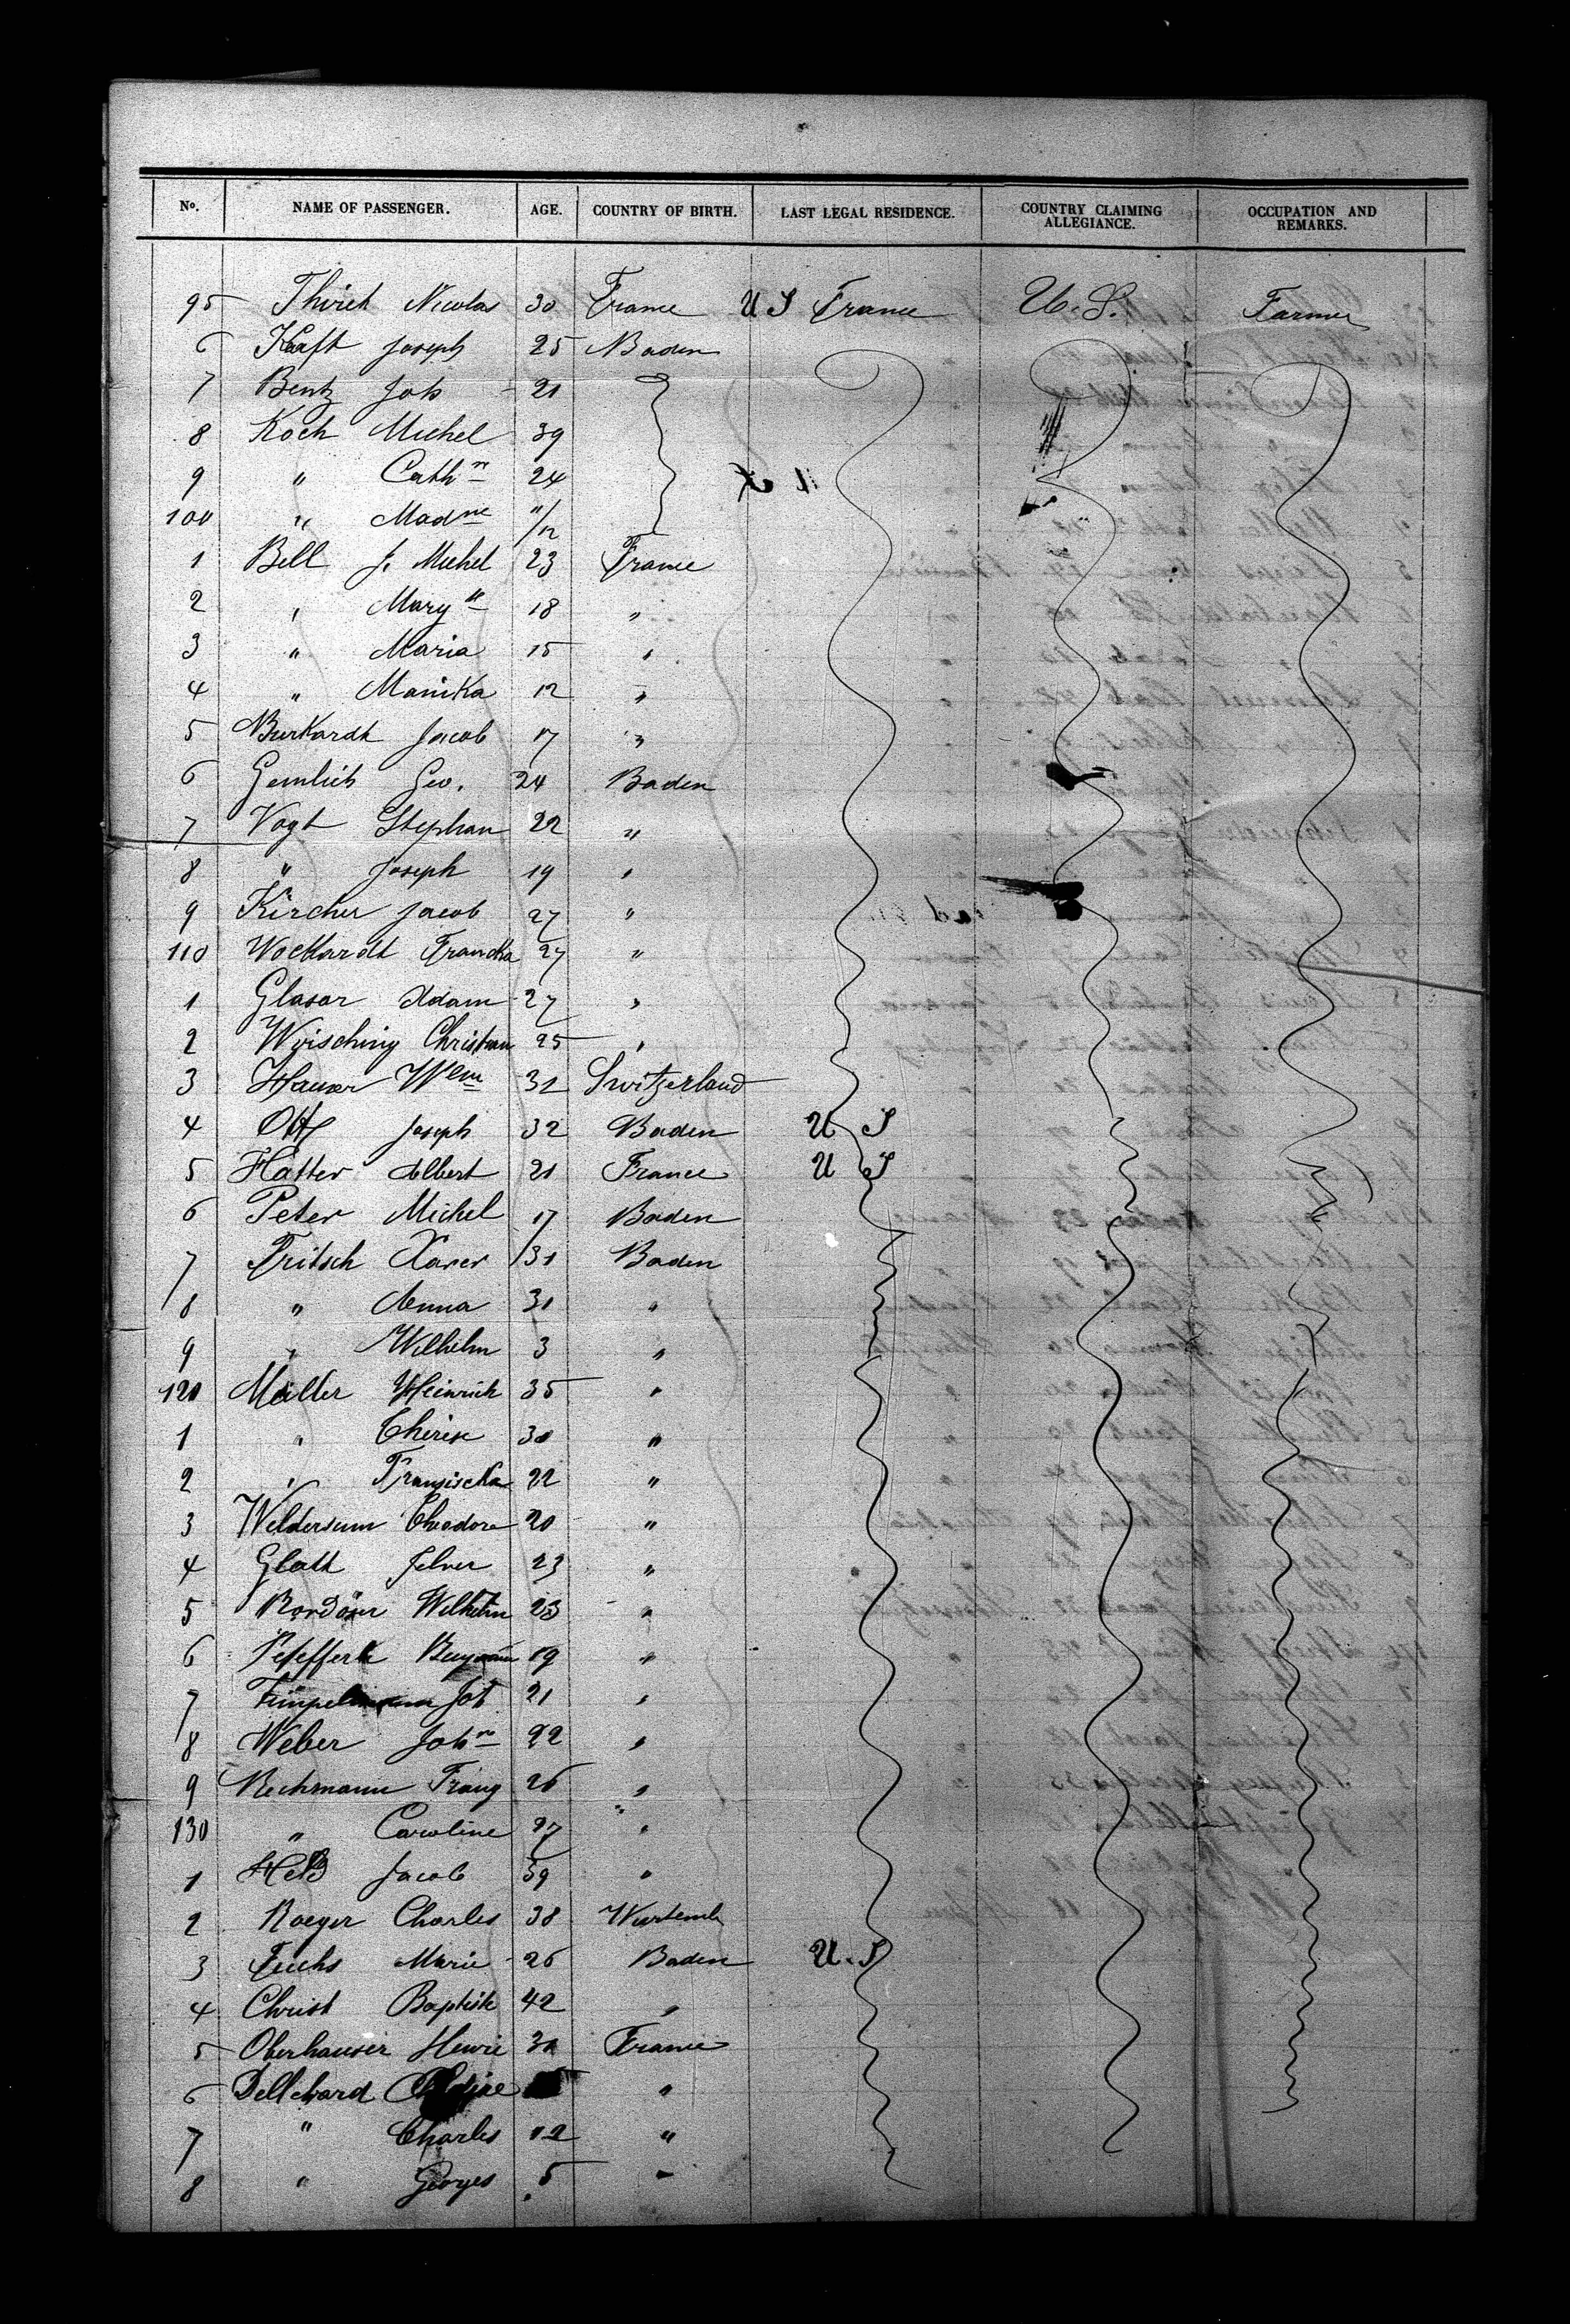 No. NAME OF PASSENGER. AGE. COUNTRY OF BIRTH. LAST LEGAL RESIDENCE. COUNTRY CLAIMING ALLEGIANCE. OCCUPATION AND REMARKS.
95 Thirich Nicolas 30 France U S France U. S. Farmer
6 Kraft Joseph 25 Baden
7 Bentz Joh 21
8 Koch Michel 39
9 " Cathne 24
100 " Madne 11/12
1 Bell J. Michel 23 France
2 " Mary 18 "
3 " Maria 15 "
4 " Manika 12 "
5 Burkardt Jacob 17 "
6 Gemlich Geo. 24 Baden
7 Vogt Stephan 22 "
8 " Joseph 19 "
9 Kircher Jacob 27 "
110 27 "
1 Glasar Adam 27 "
2 Christian 25 "
3 Hauser Wlm 32 Switzerland
4 Ott Joseph 32 Baden U S
5 Hatter Albert 21 France U S
6 Peter Michel 17 Baden
7 Fritsch Xaver 31 Baden
8 " Anna 31 "
9 " Wilhelm 3 "
120 Müller Heinrich 35 "
1 " Therese 30 "
2 " Franziscka 22 "
3 Theodore 20 "
4 Glatt 23 "
5 Wilhelm 23 "
6 Benjamin 19 "
7 Joh 21 "
8 Weber John 22 "
9 Bechmann Franz 26 "
130 " Caroline 27 "
1 Heß Jacob 39 "
2 Roeger Charles 38 Wurtemb
3 Fuchs Marie 26 Baden U. S
4 Christ Baptiste 42 "
5 Oberhauser Henri 30 France
6 Dellchard "
7 " Charles 12 "
8 " Georges 5 "